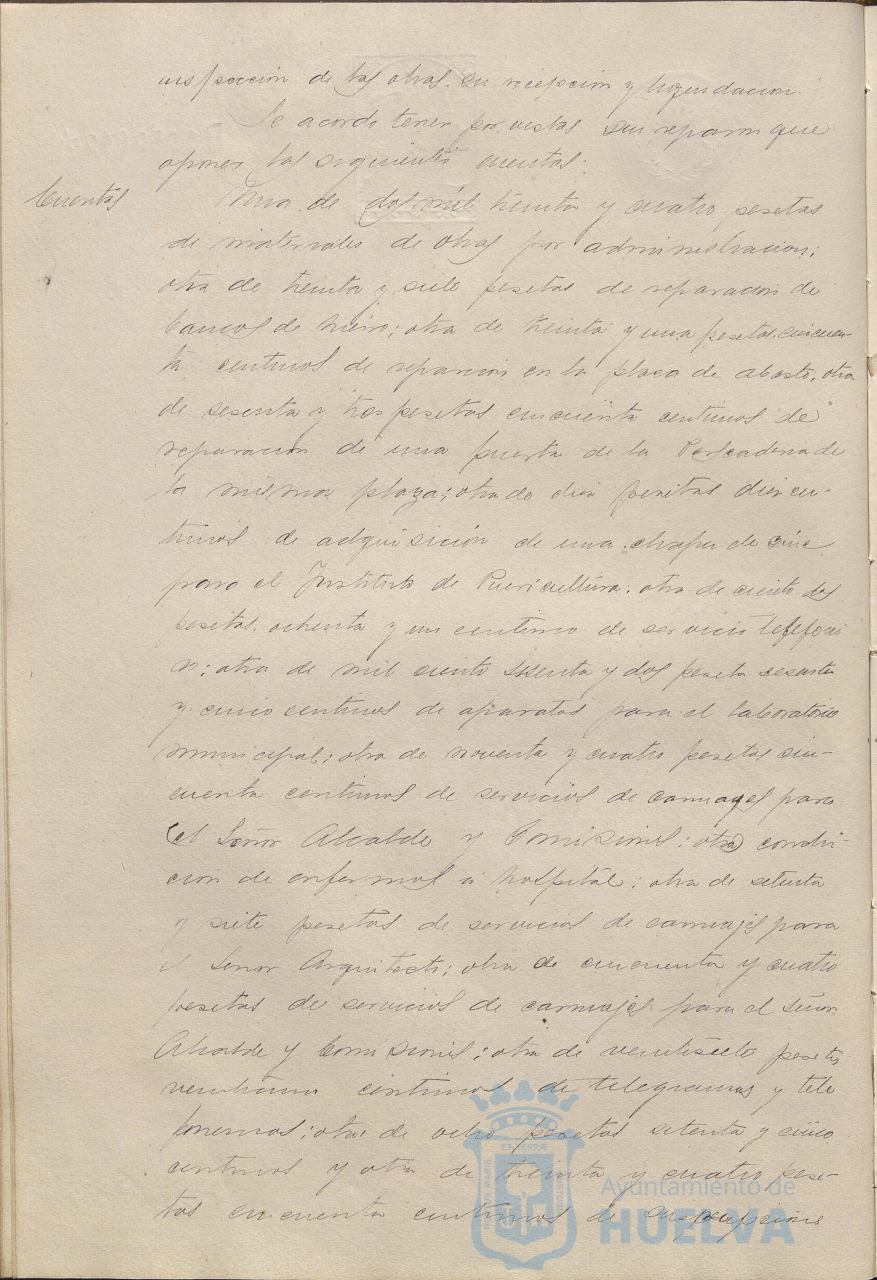 inspección de las obras, su recepción y liquidación.
Se acordo tener por vistas sin reparos que
oponer las siguientes cuentas:
Cuentas
Una de dos mil treinta y cuatro pesetas
de materiales de obras por administracion;
otra de treinta y siete pesetas de reparacion de
bancos de hierro; otra de treinta y una pesetas cincuen-
ta centimos de reparación en la plaza de abasto; otra
de sesenta y tres pesetas cincuenta centimos de
reparacion de una puerta de la Pescaderia de
la misma plaza; otra de diez pesetas diez cen-
timos de adquisición de una chapa de cinc
para el Instituto de Puericultura; otra de ciento dos
pesetas ochenta y un centimo de servicio telefoni
co; otra de mil ciento sesenta y dos peseta sesenta
y cinco centimos de aparatos para el laboratorio
municipal; otra de noventa y cuatro pesetas cin-
cuenta centimos de servicios de carruages para
(el Señor Alcalde y Comisiones; otra) conduc-
cion de enfermos a hospital; otra de setenta
y siete pesetas de servicios de carruajes para
el Señor Arquitecto; otra de cincuenta y cuatro
pesetas de servicios de carruajes para el Señor
Alcalde y Comisiones; otra de ventisiete pesetas
ventiuno centimos de telegramas y tele
fonemas; otra de ocho pesetas setenta y cinco
centimos y otra de treinta y cuatro pese-
tas cincuenta centimos de suscripciones
Ayuntamiento de
HUELVA